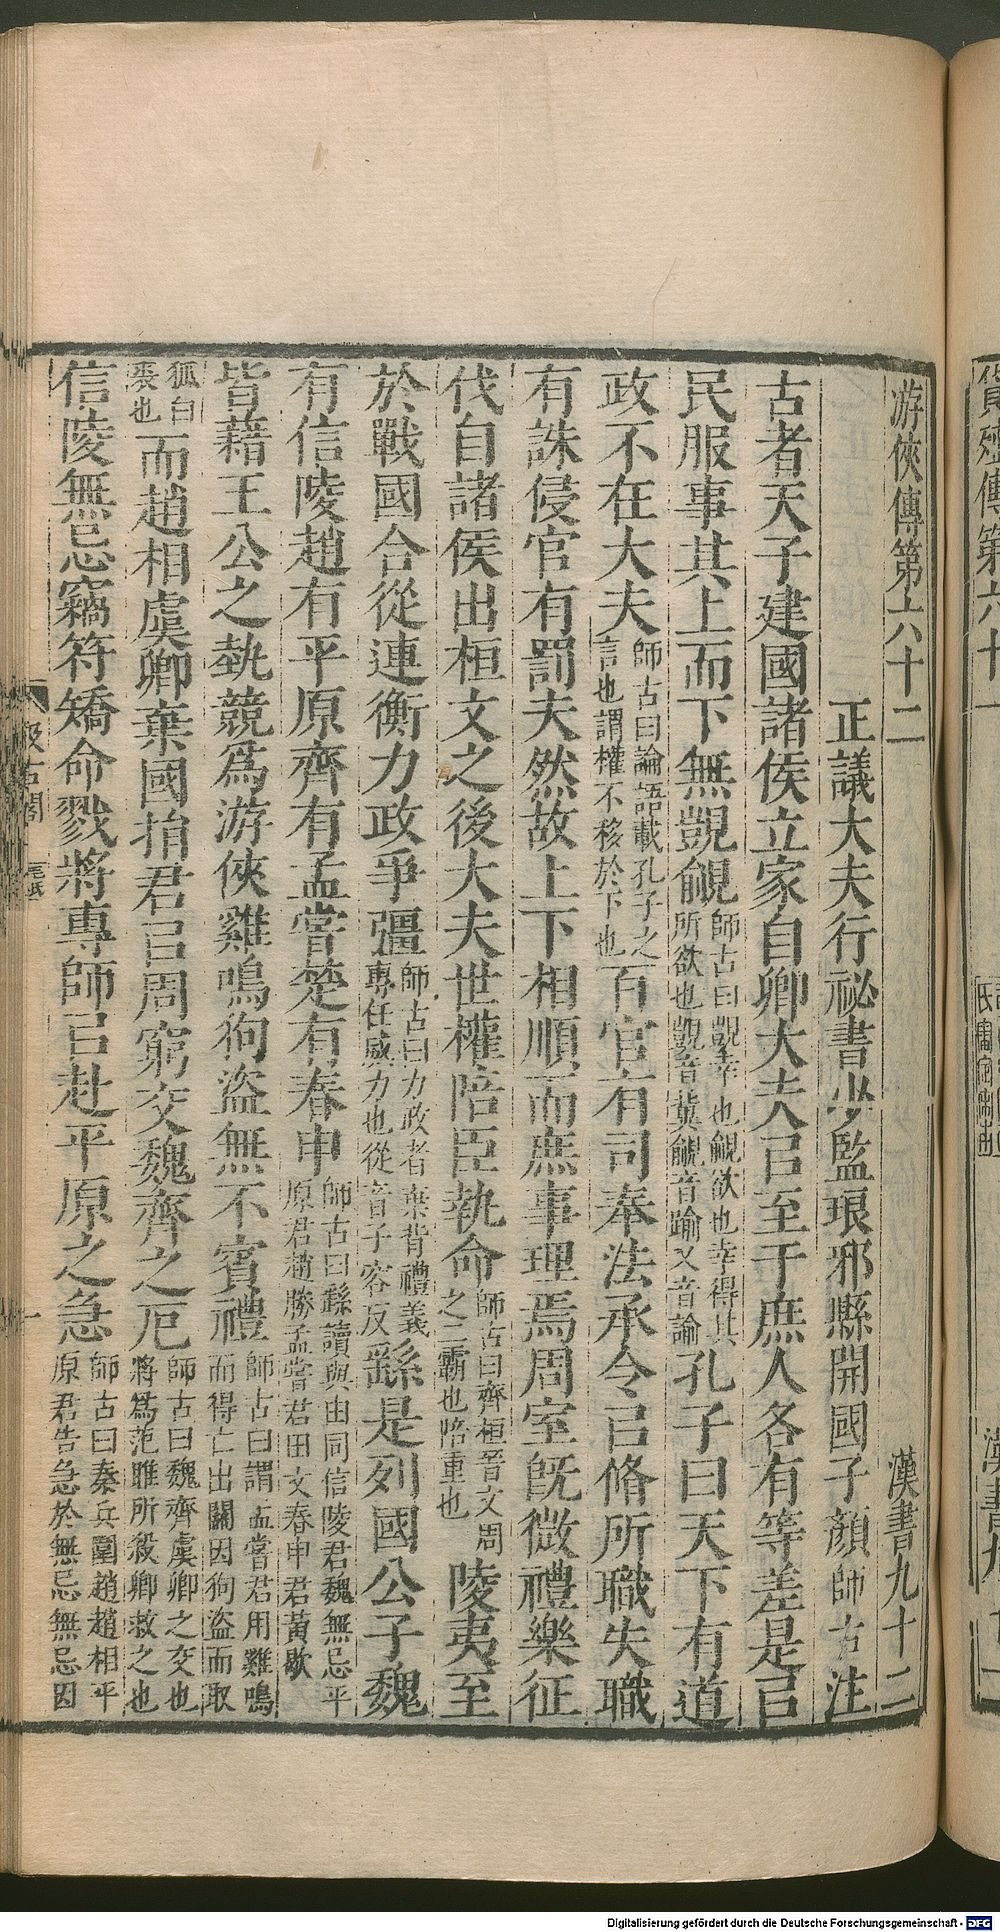 游俠傳第六十二 漢書九十二
正議大夫行祕書少監琅邪縣開國子顏師古注
古者天子建國諸侯立家自卿大夫㠯至于庶人各有等差是㠯
民服事其上而下無覬覦師古曰覬幸也覦欲也幸得其所欲也覬音冀覦音踰又音諭孔子曰天下有道
政不在大夫師古曰論語載孔子之言也謂權不移於下也百官有司奉法承令㠯脩所職失職
有誅侵官有罰夫然故上下相順而庶事理焉周室旣微禮樂征
伐自諸侯出桓文之後大夫世權陪臣執命師古曰齊桓晉文周之二霸也陪重也陵夷至
於戰國合從連衡力政爭彊師古曰力政者棄背禮義專任威力也從音子容反繇是列國公子魏
有信陵趙有平原齊有孟嘗楚有春申師古曰繇讀與由同信陵君魏無忌平原君趙勝孟嘗君田文春申君黃歇
皆藉王公之埶競爲游俠雞鳴狗盜無不賓禮師古曰謂孟嘗君用雞鳴而得亡出關因狗盜而取
狐白裘也而趙相虞卿棄國捐君㠯周窮交魏齊之厄師古曰魏齊虞卿之交也將爲范睢所殺卿救之也
信陵無忌竊符矯命戮將專師㠯赴平原之急師古曰秦兵圍趙趙相平原君告急於無忌無忌因
汲古閣
一
貨殖傳第六十一
漢書九十一
Digitalisierung gefördert durch die Deutsche Forschungsgemeinschaft - DFG